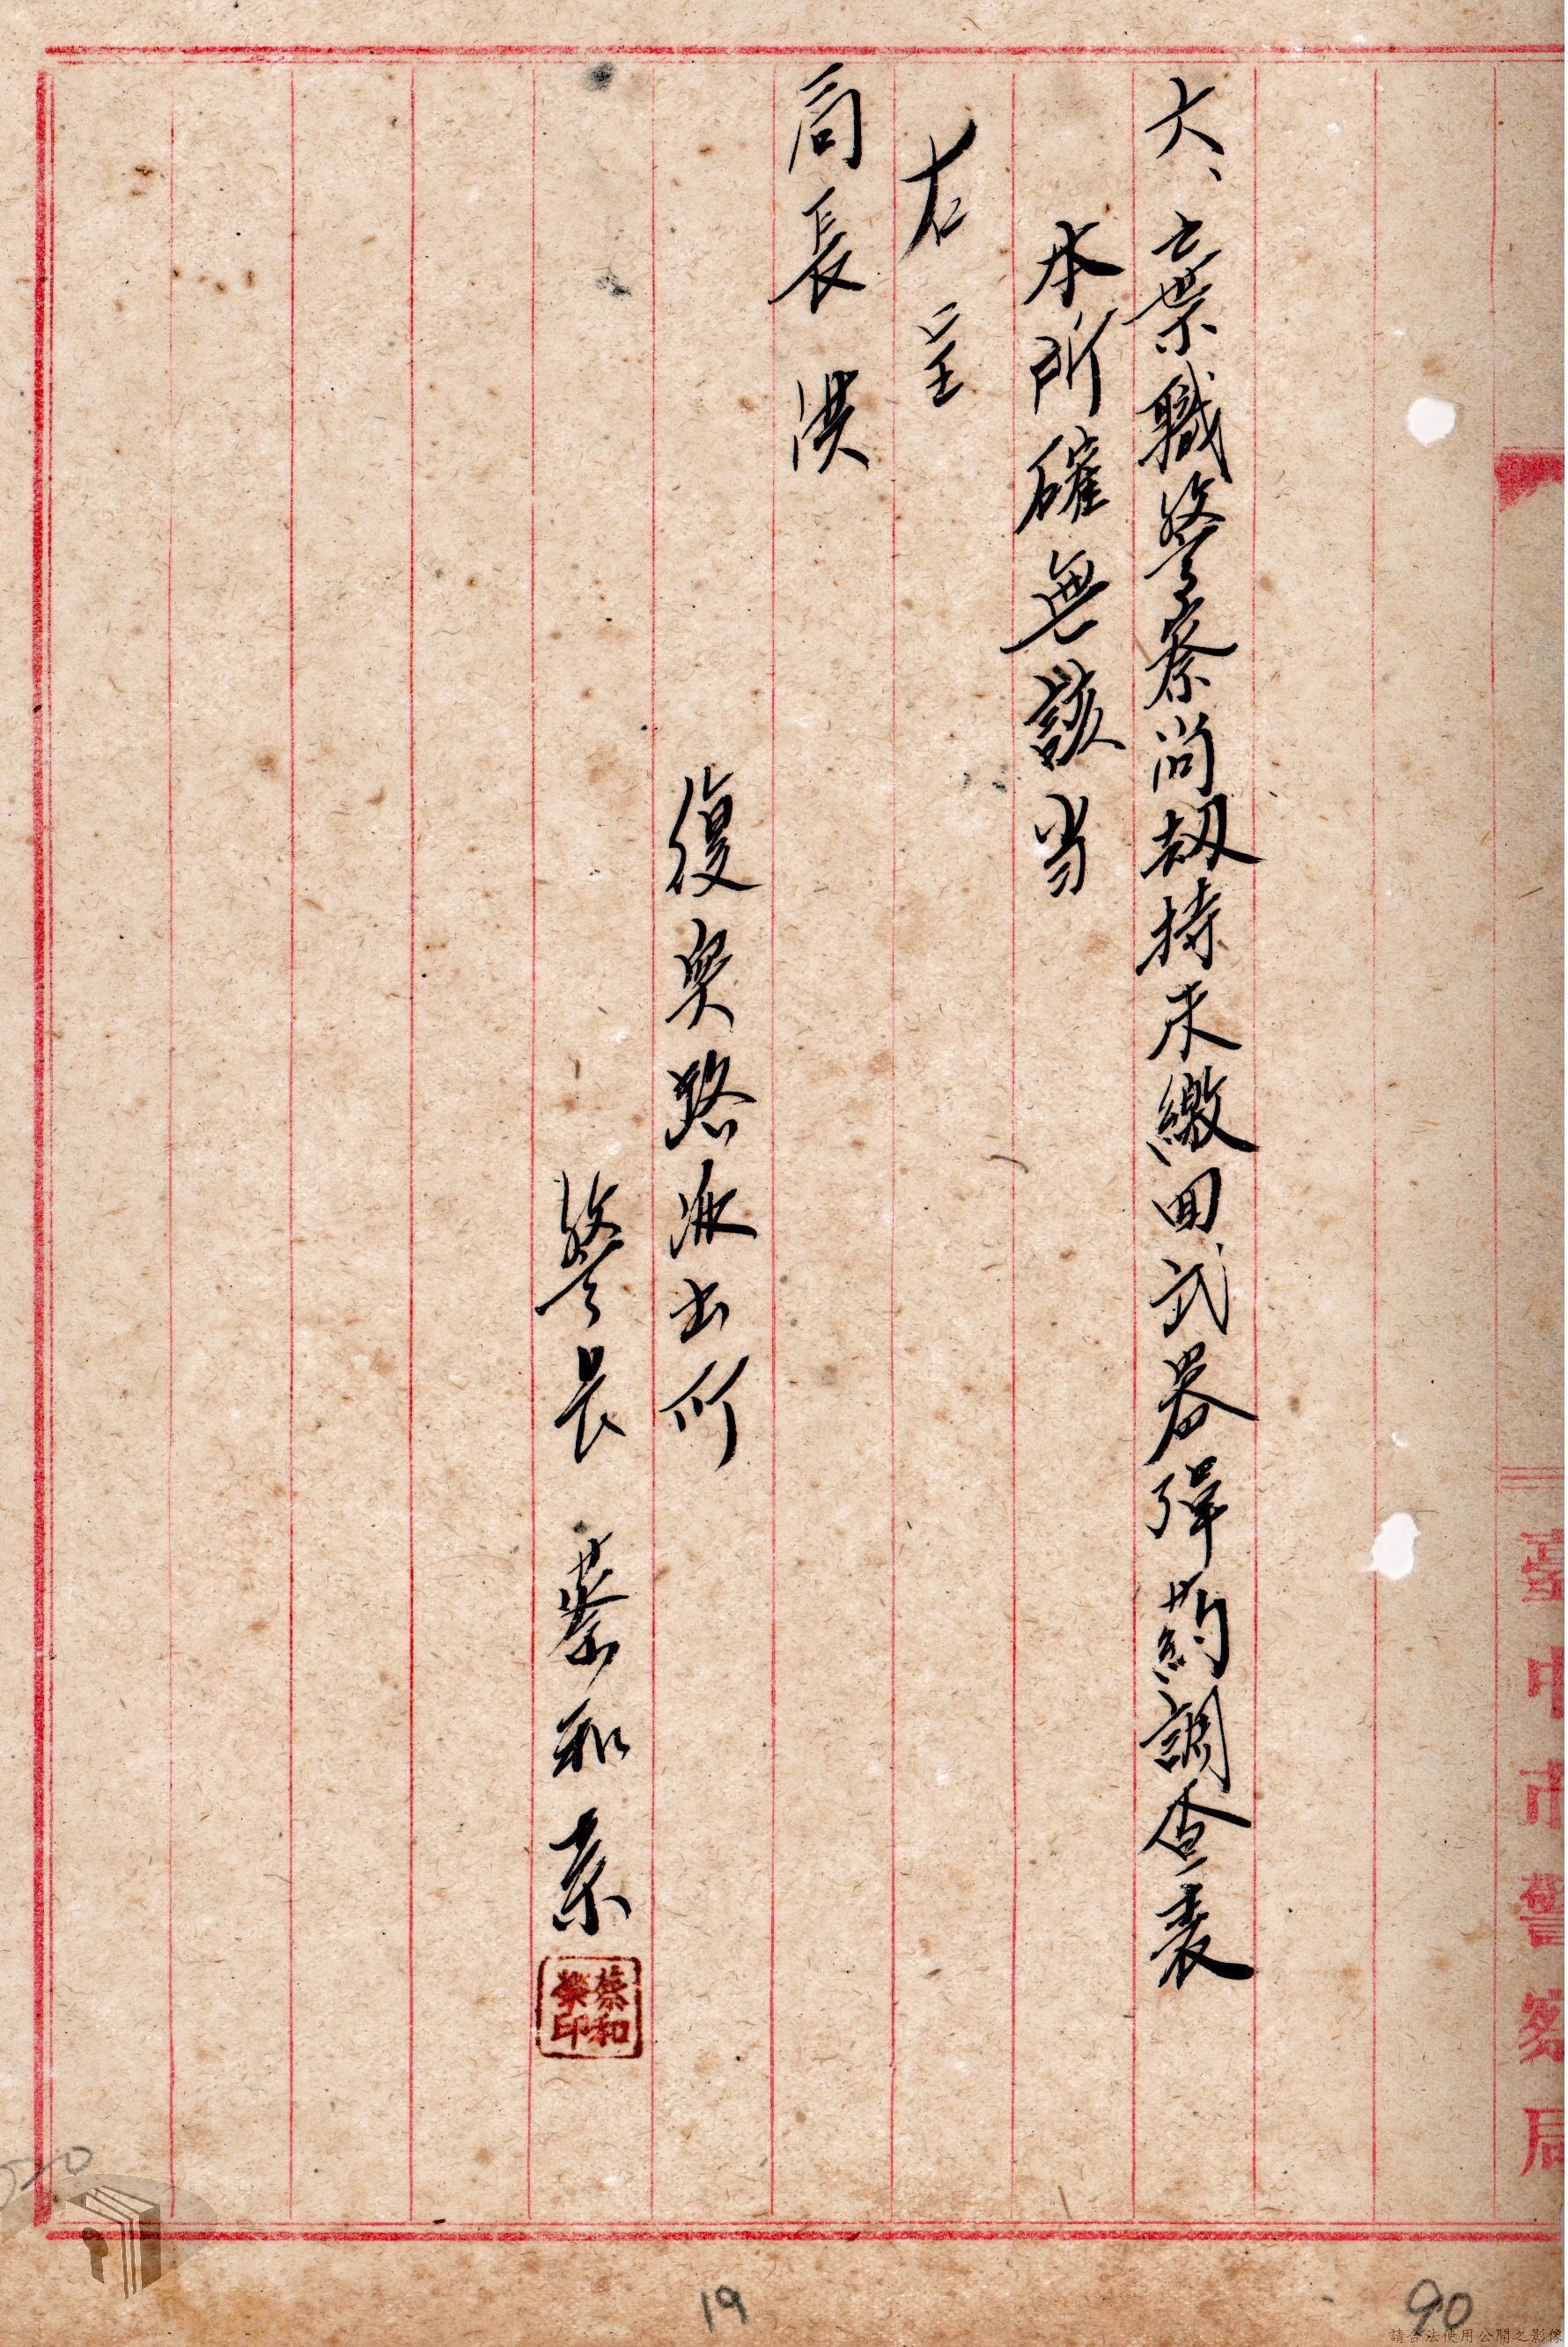 臺中市警察局
六、棄職警察尚刼持未繳回武器彈葯調查表
本所確無該当
右呈
局長洪
復興路派出所
警長 蔡和榮
蔡和榮印
90
19
請合法使用公開之影像